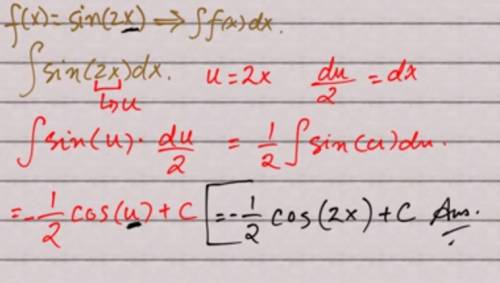 f(x) = sin(2x) ⇒ ∫f(x)dx.
∫sin(2x)dx. u = 2x du/2 = dx
↳u
∫sin(u)· du/2 = 1/2 ∫sin(u)du.
= -1/2 cos(u) + C [= -1/2 cos(2x) + C Ans.